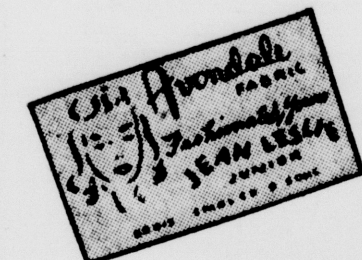 Avondale
FABRIC
Fashionably Yours
JEAN LESLIE
JUNIOR